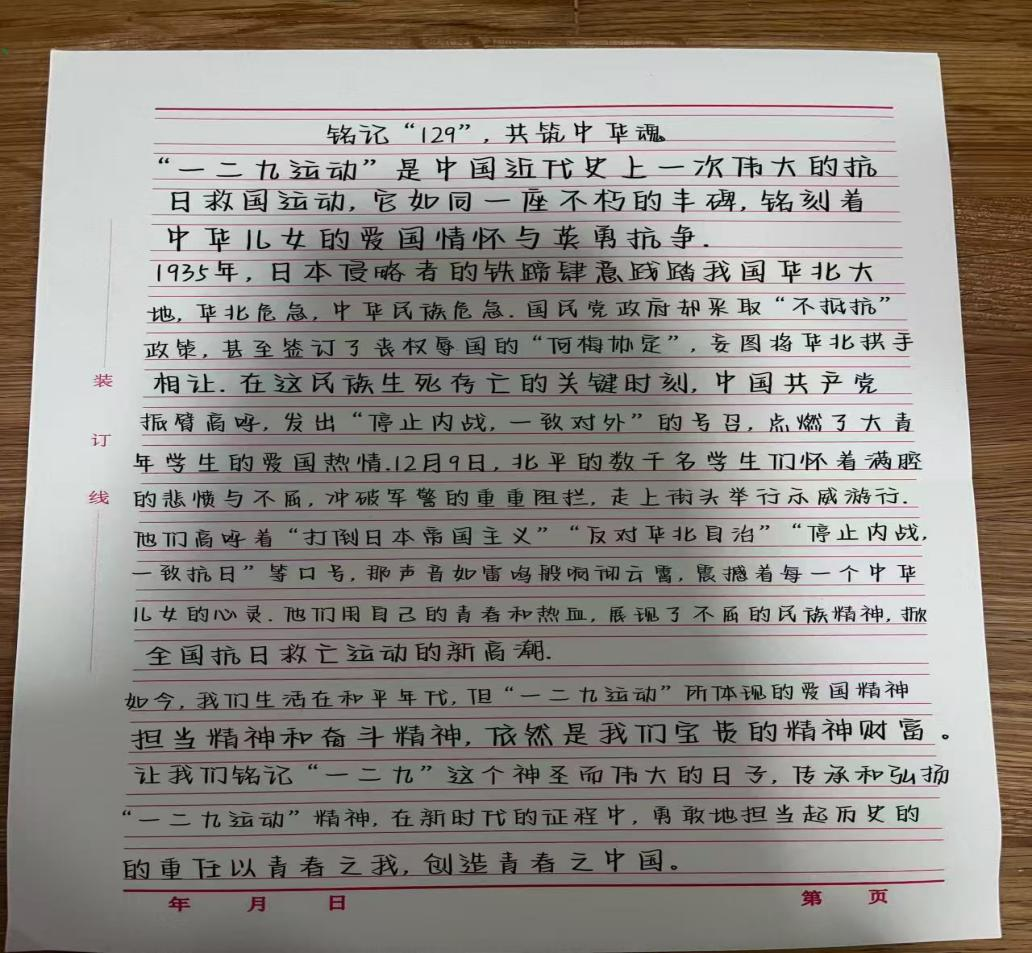 铭记“129”，共筑中华魂。
“一二九运动”是中国近代史上一次伟大的抗
日救国运动，它如同一座不朽的丰碑，铭刻着
中华儿女的爱国情怀与英勇抗争.
1935年，日本侵略者的铁蹄肆意践踏我国华北大
地，华北危急，中华民族危急.国民党政府却采取“不抵抗”
政策，甚至签订了丧权辱国的“何梅协定”，妄图将华北拱手
相让.在这民族生死存亡的关键时刻，中国共产党
振臂高呼，发出“停止内战，一致对外”的号召，点燃了大青
年学生的爱国热情.12月9日，北平的数千名学生们怀着满腔
的悲愤与不屈，冲破军警的重重阻拦，走上街头举行示威游行.
他们高呼着“打倒日本帝国主义”“反对华北自治”“停止内战，
一致抗日”等口号，那声音如雷鸣般响彻云霄，震撼着每一个中华
儿女的心灵.他们用自己的青春和热血，展现了不屈的民族精神，掀
全国抗日救亡运动的新高潮.
如今，我们生活在和平年代，但“一二九运动”所体现的爱国精神
担当精神和奋斗精神，依然是我们宝贵的精神财富。
让我们铭记“一二九”这个神圣而伟大的日子，传承和弘扬
“一二九运动”精神，在新时代的征程中，勇敢地担当起历史的
的重任以青春之我，创造青春之中国。
装
订
线
年 月 日 第 页